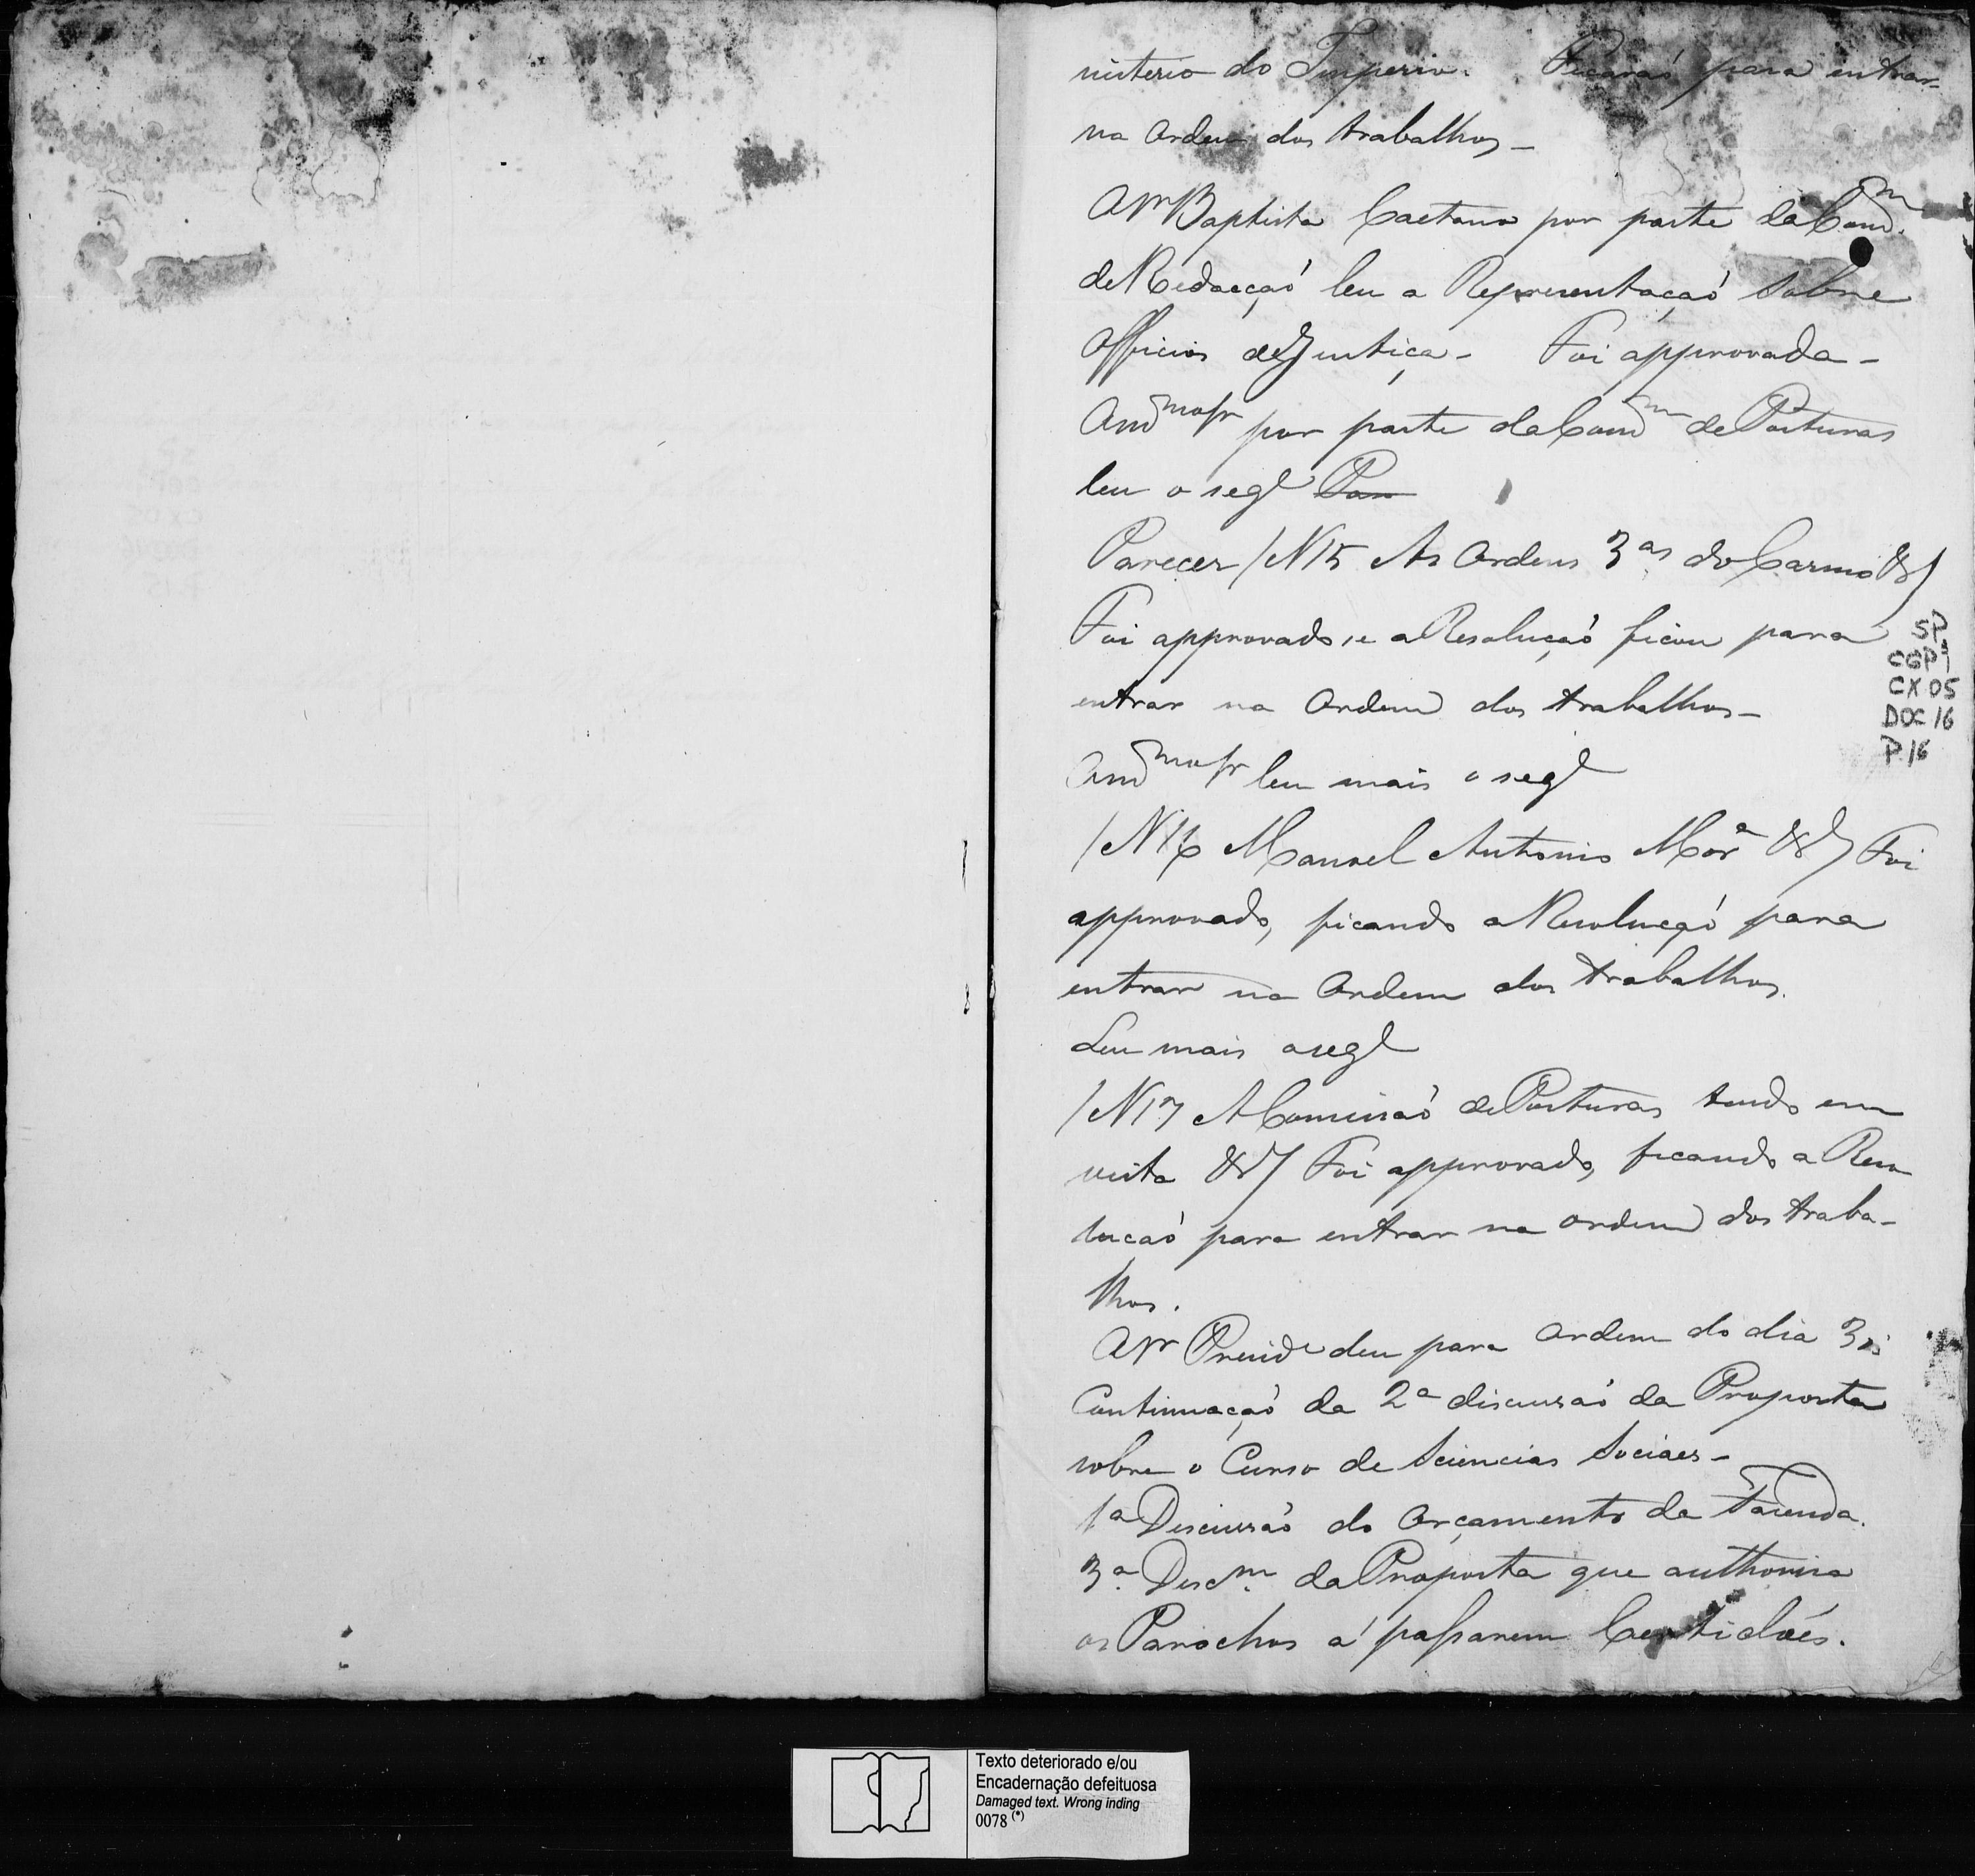 nisterio do Imperio. Ficaraó para entrar
na Ordem dos trabalhos –
O Sr Baptista Caetano por parte da Comm.
de Redacçaó leu a Representaçaó sobre
Officios de Justiça – Foi approvada –
O mmo Sr por parte da Comm de Posturas
leu o sege Par
Parecer /N 15 As Ordens 3as do Carmo &/
Foi approvado, e a Resoluçaó ficou para
entrar na Ordem dos trabalhos –
O mmo Sr leu mais o sege
/N 16 Manoel Antonio Mora &/ Foi
approvado, ficando a Resoluçaó para
entrar na Ordem dos trabalhos.
Leu mais o sege
/N 17 A Comissaó de Posturas tendo em
vista &/ Foi approvado, ficando a Reso
lucaó para entrar na ordem dos traba-
lhos.
O Sr Preside deu para Ordem do dia 3
Continuaçaó da 2a discussaó da Proposta
sobre o Curso de Sciencias Sociaes –
1a Discussaó do Orçamento da Fazenda.
3a Discm da Proposta que authorisa
os Parochos a passarem Certidoẽs.
SP
CGP1
CX 05
DOC 16
P. 16
Texto deteriorado e/ou
Encadernação defeituosa
Damaged text. Wrong inding
0078 (*)